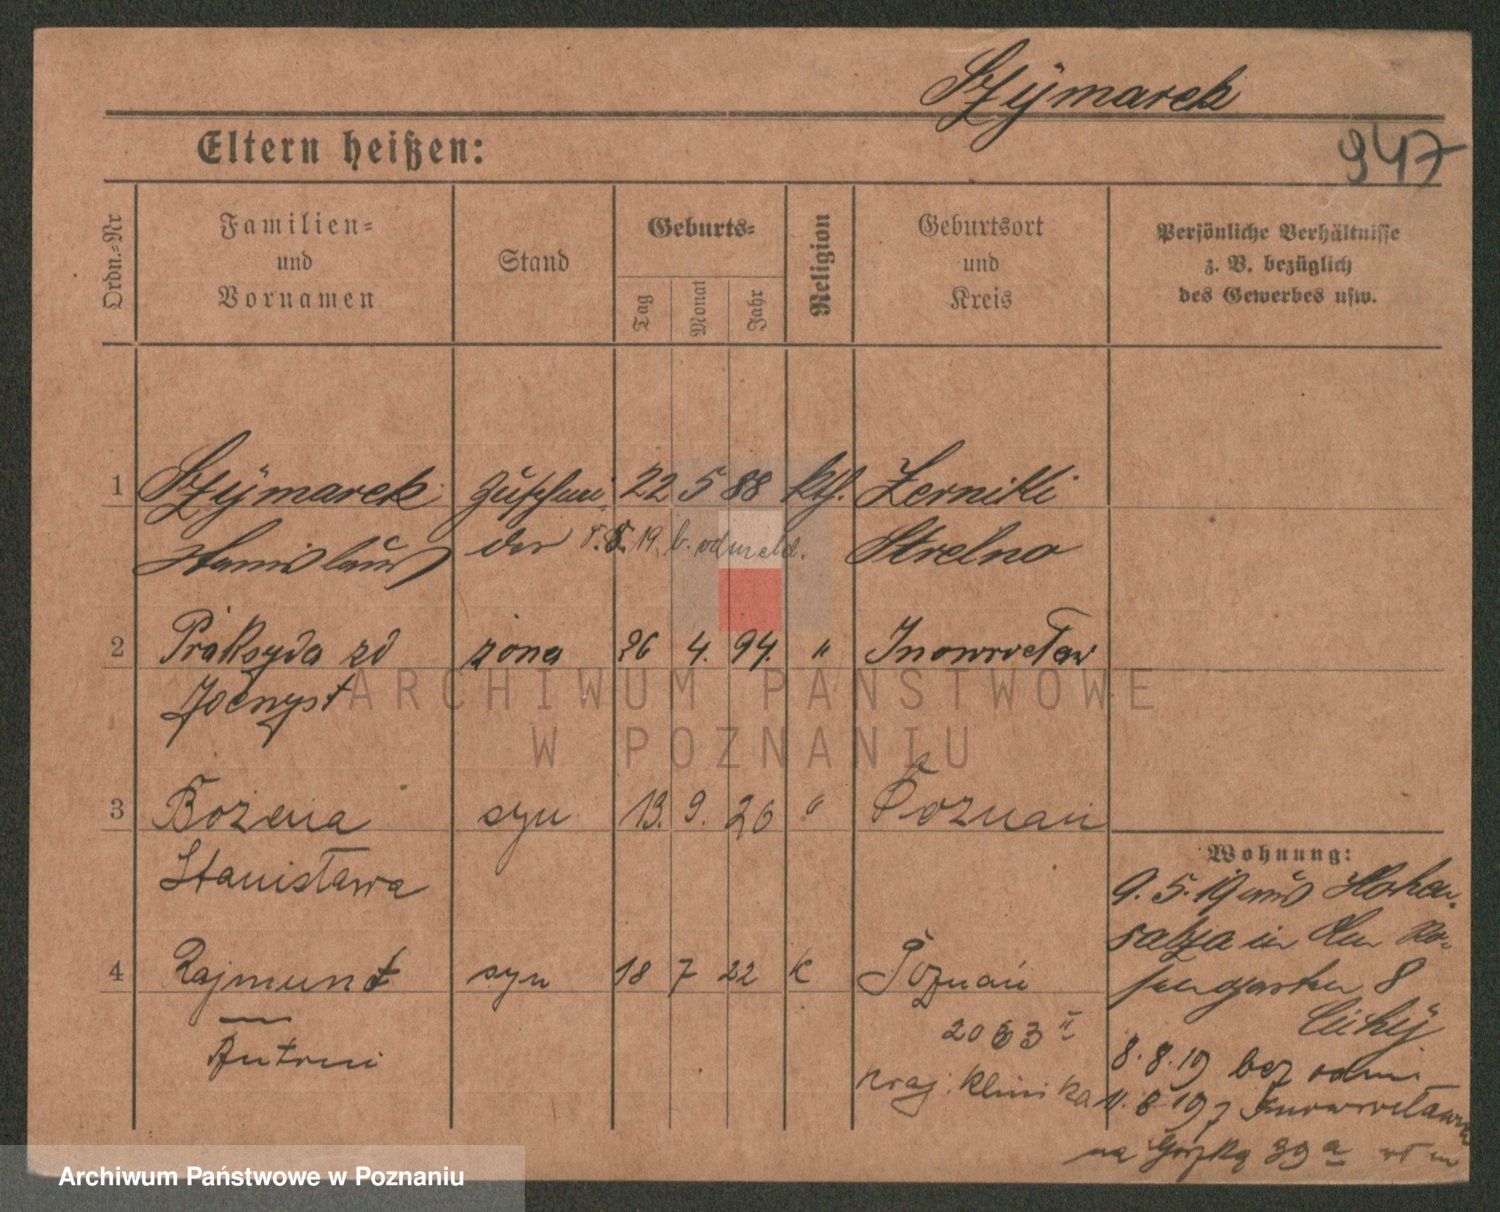 Szÿmarek
947
Eltern heißen:
Ordn.-Nr
Familien-
und
Vornamen
Stand
Geburts-
Tag
Monat
Jahr
Religion
Geburtsort
und
Kreis
Persönliche Verhältnisse
z. B. bezüglich
des Gewerbes usw.
1 Szÿmarek 22 5 88 kth. Zerniki
Stanislaus 8. 8. 19. b. odmeld. Strelno
2 Praksyda zd żona 26 4. 94. " Inowrocław
3 Bożena syn 13. 9. 26 " Poznań
Stanisława
4 Rajmund syn 18 7 22 k Poznań
Antoni
2063 II
Kraj. Klinika
Wohnung:
9. 5. 19 aus Hohen-
salza in
8
8. 8. 19 bez odm.
11. 8. 19 z Inowrocławia
na 39 a
ARCHIWUM PAŃSTWOWE
W POZNANIU
Archiwum Państwowe w Poznaniu